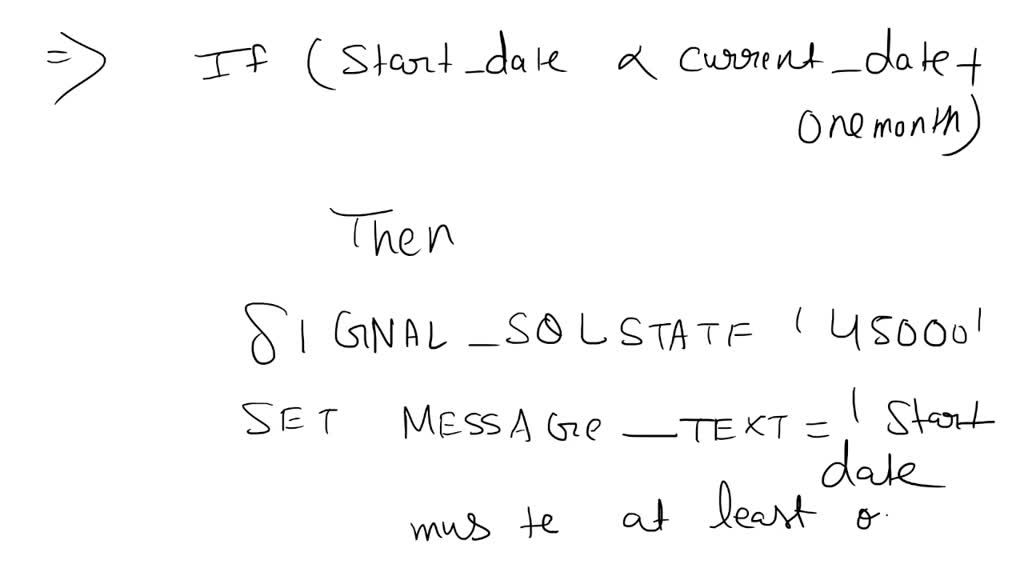 => If (Start_date < current_date +
one month)
Then
SIGNAL_SQLSTATE '45000'
SET MESSAGE_TEXT = ' Start
date
mus te at least o